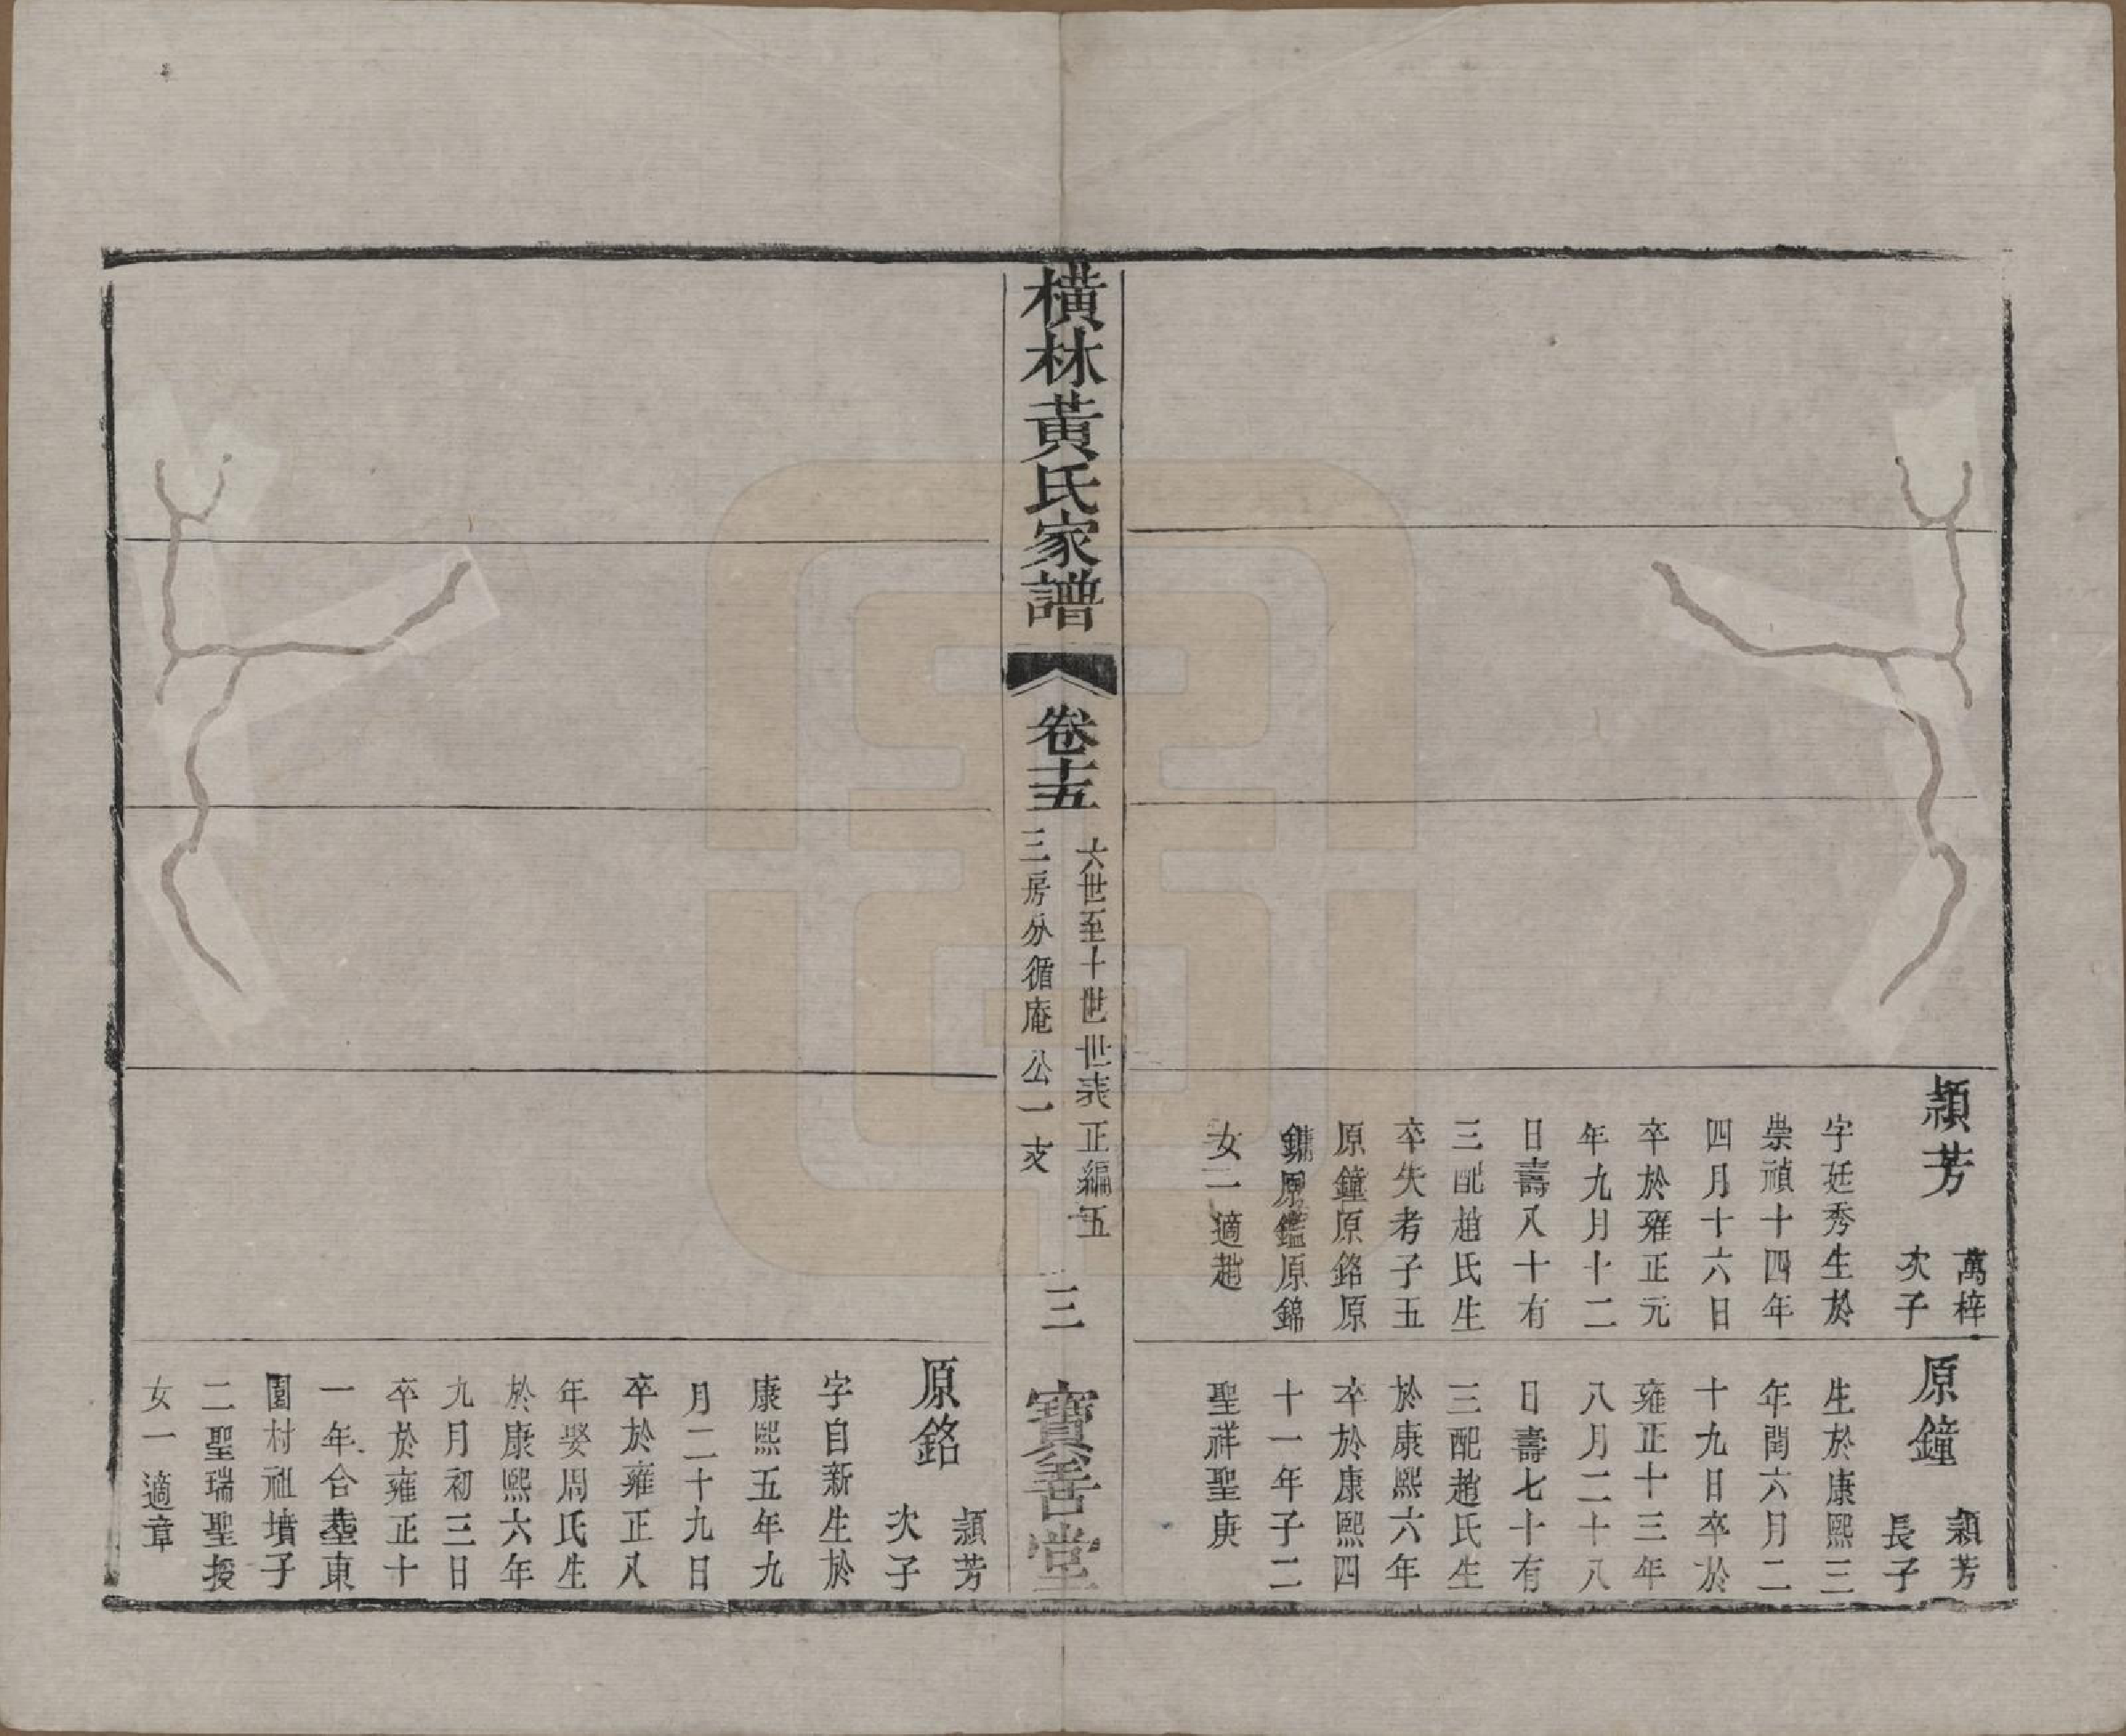 穎芳
萬梓
次子
字廷秀生於
崇禎十四年
四月十六日
卒於雍正元
年九月十二
日壽八十有
三配趙氏生
卒失考子五
原鐘原銘原
鏞原鑑原錦
女二適趙
原鐘
穎芳
長子
生於康熙三
年閏六月二
十九日卒於
雍正十三年
八月二十八
日壽七十有
三配趙氏生
於康熙六年
卒於康熙四
十一年子二
聖祥聖庚
橫林黃氏家譜
卷十五
六世至十世世表正編五
三房分循庵公一支
三
寶善堂
原銘
穎芳
次子
字自新生於
康熙五年九
月二十九日
卒於雍正八
年娶周氏生
於康熙六年
九月初三日
卒於雍正十
一年合塟東
園村祖墳子
二聖瑞聖授
女一適章